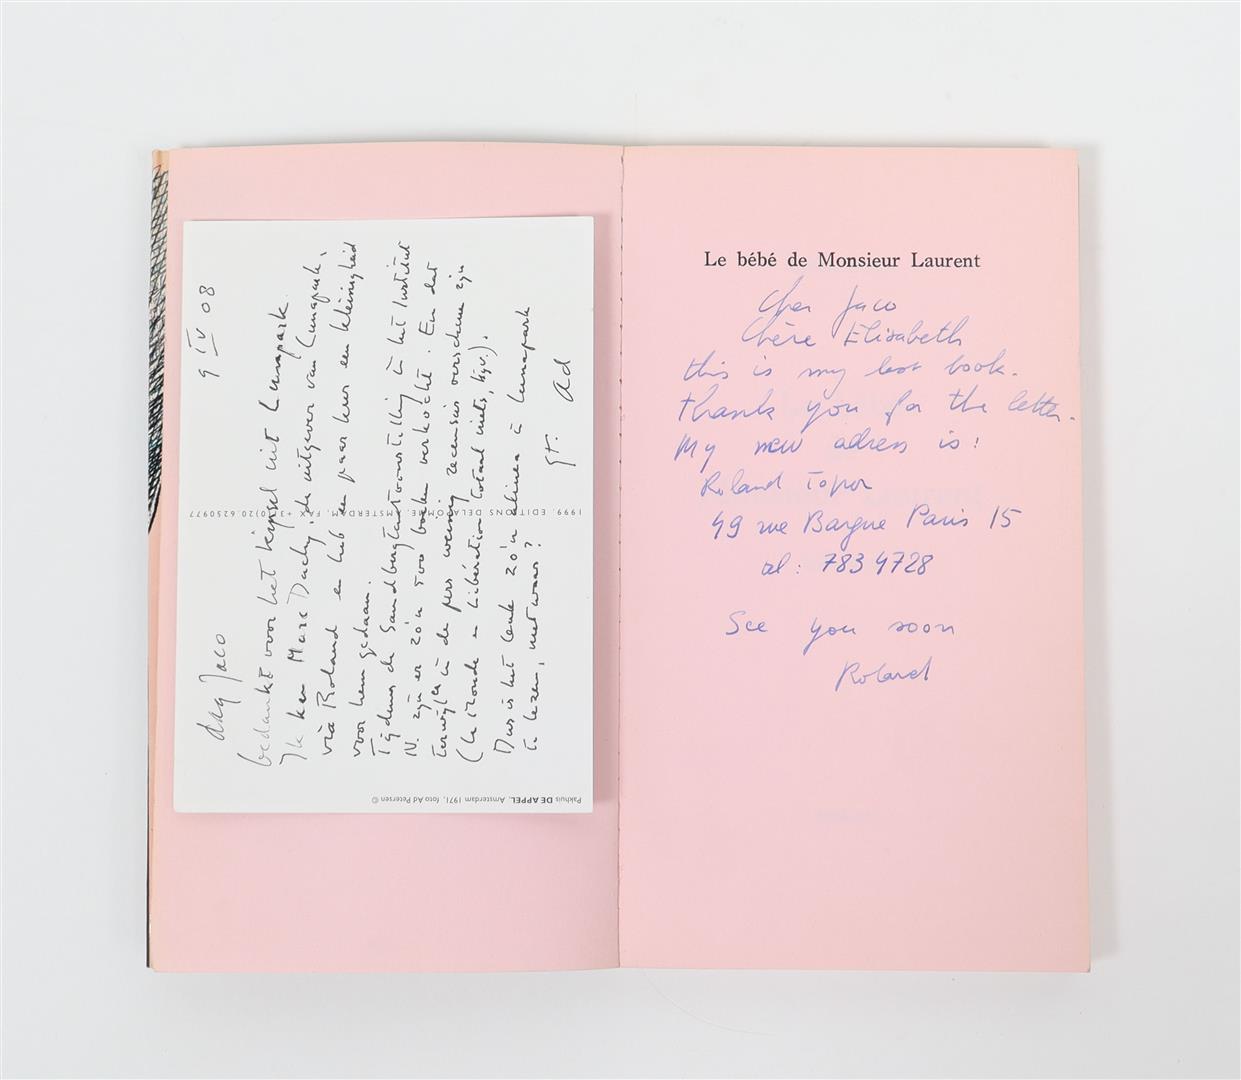 9 IV 08
dag Jaco
bedankt voor het knipsel uit Lunapark.
Ik ken Marc Dachy, de uitgever van Lunapark,
via Roland en heb een paar keer een kleinigheid
voor hem gedaan.
Tijdens de Sandbergtentoonstelling in het Institut
N. zijn er zo'n 500 boeken verkocht. En dat
terwijl er in de pers weinig recensies verschenen zijn
(Le Monde en Libération totaal niets, bijv.).
Dus is het leuk zo'n alinea in Lunapark
te lezen, niet waar?
gr. Ad
1999, EDITIONS DELA AMSTERDAM, FAX +3 (0)20.6250977
Pakhuis DE APPEL, Amsterdam 1971, foto Ad Petersen ©
Le bébé de Monsieur Laurent
Cher Jaco
Chère Elisabeth
this is my last book.
Thank you for the letter.
My new adress is:
Roland Topor
49 rue Bargue Paris 15
tel: 783 4728
See you soon
Roland